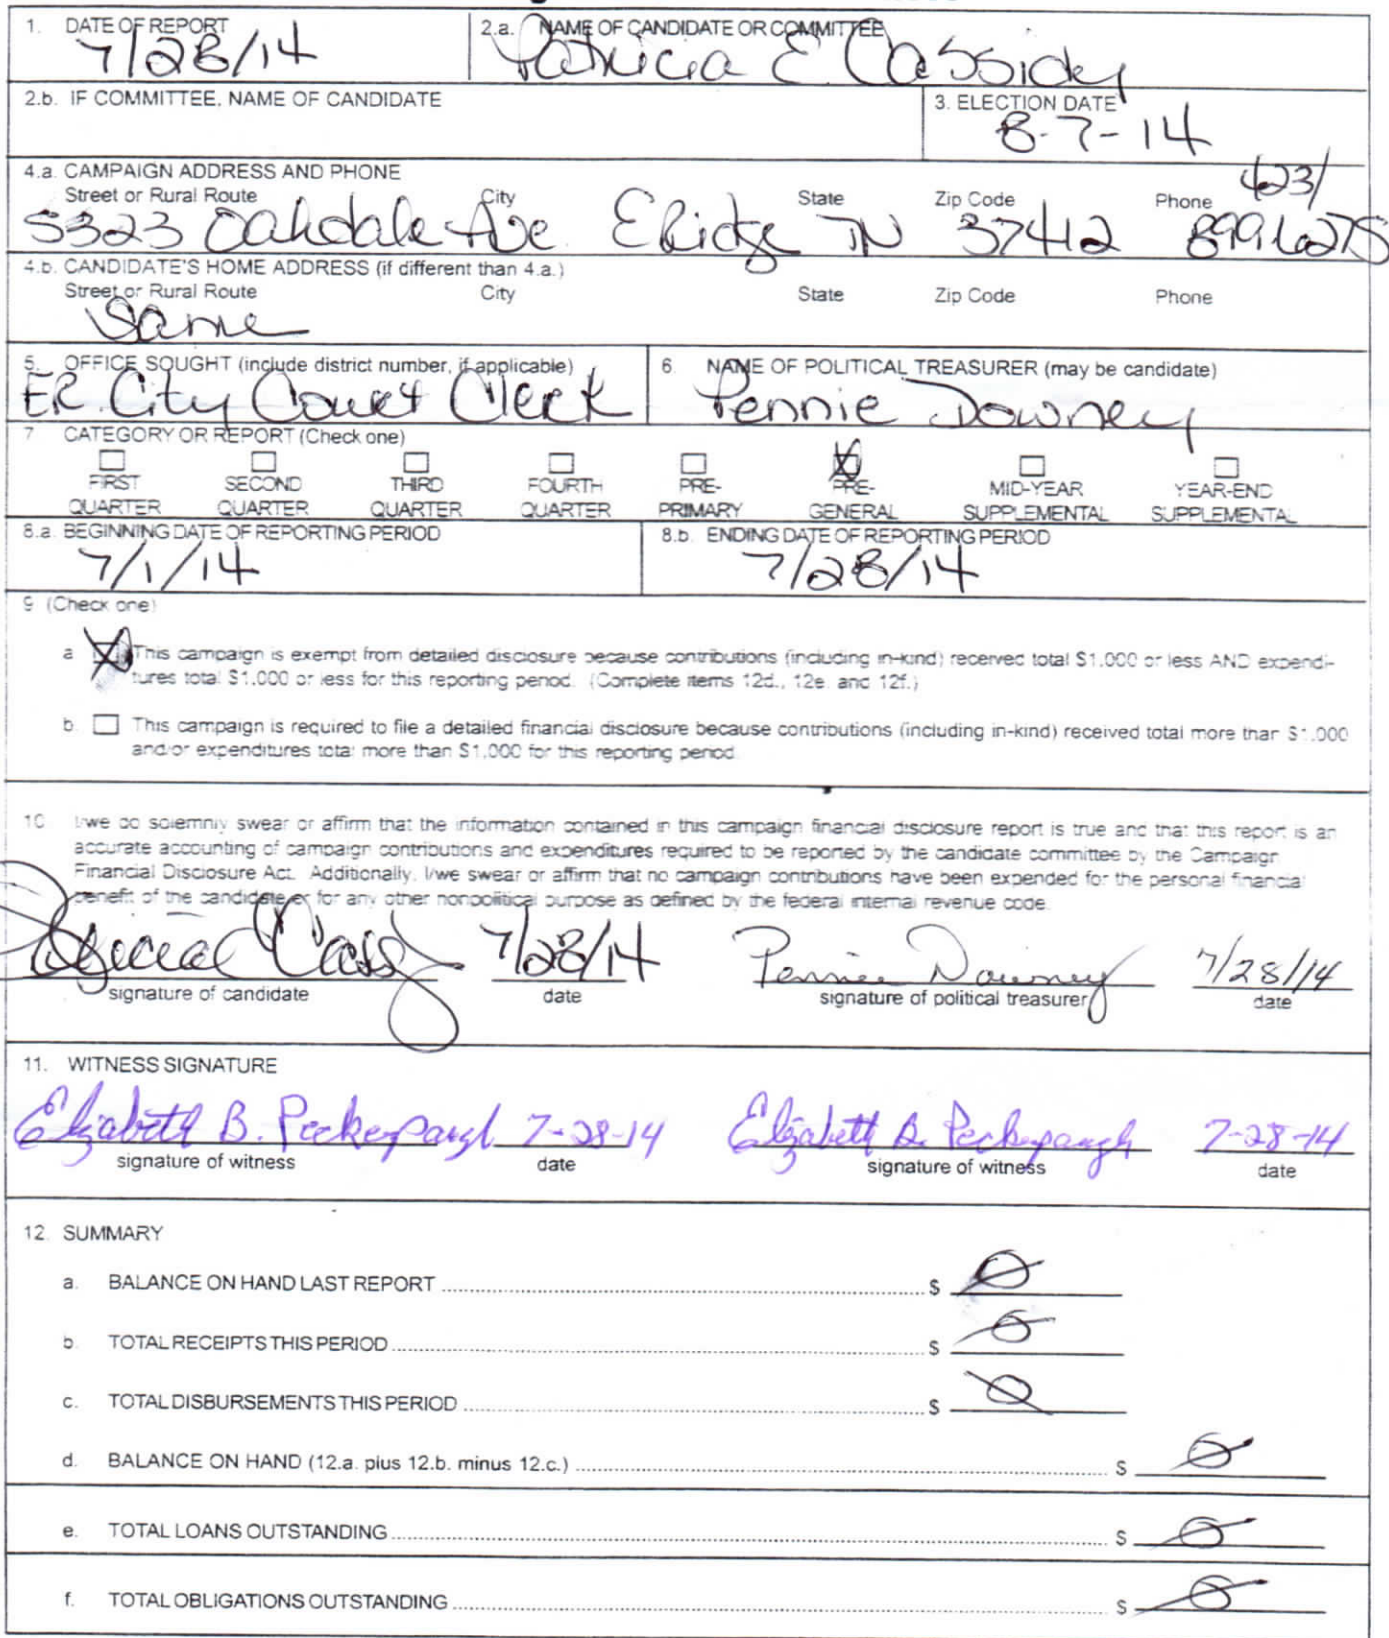 1. DATE OF REPORT
7/28/14
2.a. NAME OF CANDIDATE OR COMMITTEE
Patricia E Cassidy
2.b. IF COMMITTEE, NAME OF CANDIDATE
3. ELECTION DATE
8-7-14
4.a. CAMPAIGN ADDRESS AND PHONE
Street or Rural Route City State Zip Code Phone 423/
5323 Oakdale Ave ERidge TN 37412 8996275
4.b. CANDIDATE'S HOME ADDRESS (if different than 4.a.)
Street or Rural Route City State Zip Code Phone
Same
5. OFFICE SOUGHT (include district number, if applicable)
ER. City Court Clerk
6. NAME OF POLITICAL TREASURER (may be candidate)
Pennie Downey
7 CATEGORY OR REPORT (Check one)
FIRST SECOND THIRD FOURTH PRE- PRE- MID-YEAR YEAR-END
QUARTER QUARTER QUARTER QUARTER PRIMARY GENERAL SUPPLEMENTAL SUPPLEMENTAL
8.a. BEGINNING DATE OF REPORTING PERIOD
7/1/14
8.b. ENDING DATE OF REPORTING PERIOD
7/28/14
9 (Check one)
a This campaign is exempt from detailed disclosure because contributions (including in-kind) received total $1,000 or less AND expendi-
tures total $1,000 or less for this reporting period. (Complete items 12d., 12e. and 12f.)
b. This campaign is required to file a detailed financial disclosure because contributions (including in-kind) received total more than $1,000
and/or expenditures total more than $1,000 for this reporting period.
10 I/we do solemnly swear or affirm that the information contained in this campaign financial disclosure report is true and that this report is an
accurate accounting of campaign contributions and expenditures required to be reported by the candidate committee by the Campaign
Financial Disclosure Act. Additionally, I/we swear or affirm that no campaign contributions have been expended for the personal financial
benefit of the candidate or for any other nonpolitical purpose as defined by the federal internal revenue code.
7/28/14 Pennie Downey 7/28/14
signature of candidate date signature of political treasurer date
11. WITNESS SIGNATURE
Elizabeth B. Peckerpaugh 7-28-14 Elizabeth B. Peckerpaugh 7-28-14
signature of witness date signature of witness date
12. SUMMARY
a. BALANCE ON HAND LAST REPORT $ 0
b. TOTAL RECEIPTS THIS PERIOD $ 0
c. TOTAL DISBURSEMENTS THIS PERIOD $ 0
d. BALANCE ON HAND (12.a. plus 12.b. minus 12.c.) $ 0
e. TOTAL LOANS OUTSTANDING $ 0
f. TOTAL OBLIGATIONS OUTSTANDING $ 0